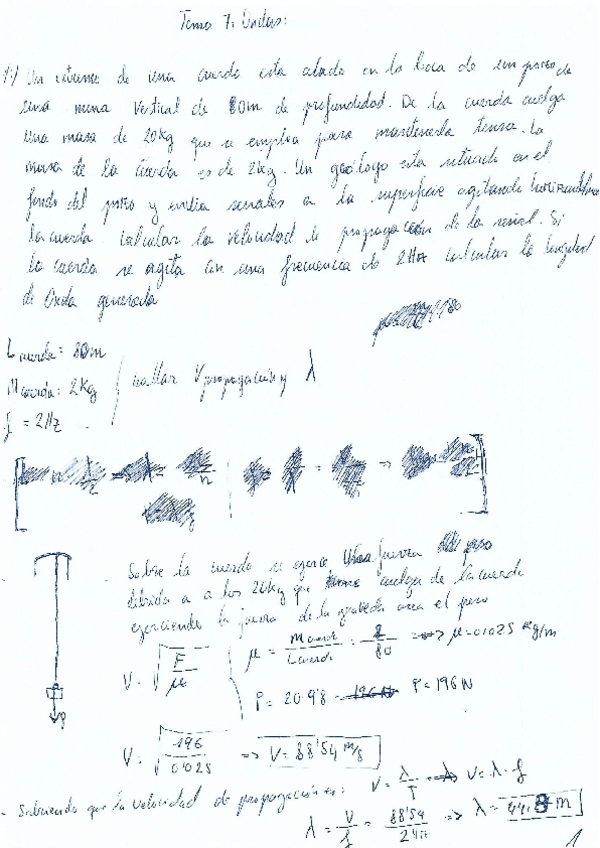 Tema 7: Ondas:
1:) Un extremo de una cuerda esta atado en la boca de un pozo de
una mina vertical de 80m de profundidad. De la cuerda cuelga
una masa de 20kg que se emplea para mantenerla tensa. la
masa de la cuerda es de 2kg. Un geólogo esta situado en el
fondo del pozo y envia senales a la superficie agitando horizontalmente
la cuerda. Calcular la velocidad de propagación de la señal. Si
la cuerda se agita con una frecuencia de 2Hz calcular la longitud
de Onda generada
L cuerda = 80m
M cuerda: 2kg
f = 2Hz
hallar V propagación y λ
Sobre la cuerda se ejerce fuerza peso
debida a a los 20kg que cuelga de la cuerda
ejerciendo la fuerza de la gravedad el peso
V = √F/μ
μ = M cuerda / L cuerda = 2/80 => μ=0'025 kg/m
P = 20·9'8 P=196N
V = √196/0'025 => V= 88'54 m/s
- Sabiendo que la velocidad de propagación es: V = λ/T V = λ·f
λ = V/f = 88'54/2Hz => λ= 44,8 m
1